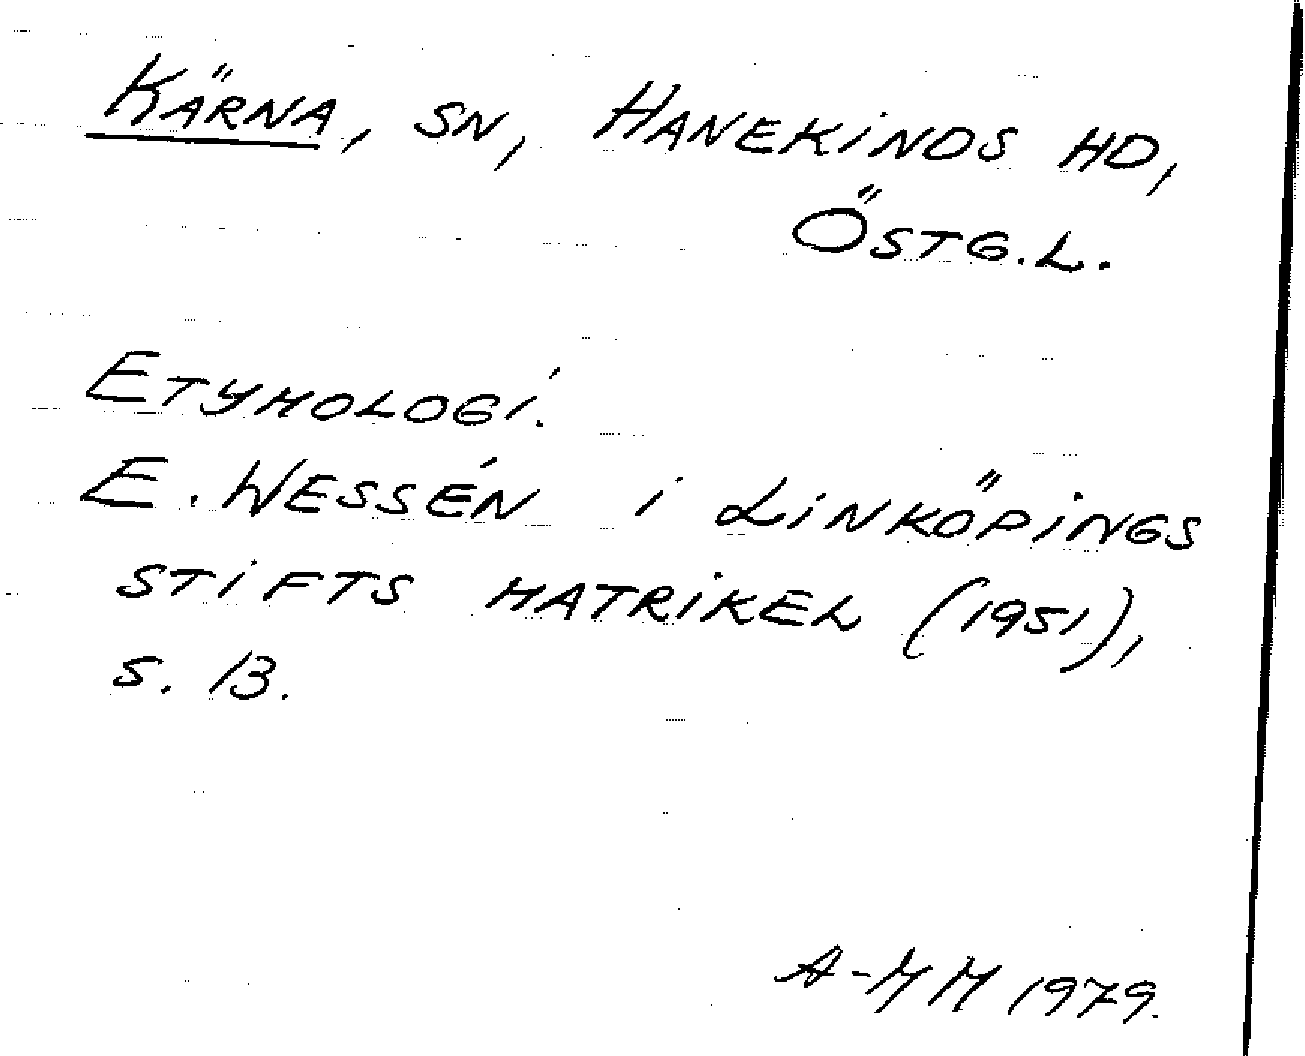 KÄRNA, SN, HANEKINDS HD,
ÖSTG.L.
ETYMOLOGI.
E. WESSÉN I LINKÖPINGS
STIFTS MATRIKEL (1951),
S. 13.
A-MM 1979.